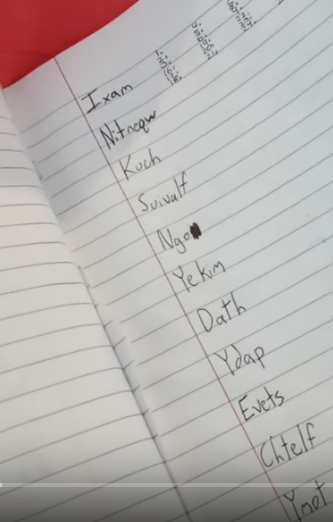 Ixam
Nitneqw
Kuch
Suivalf
Nga
Yekim
Dath
Ydap
Evets
Chtelf
Ymot